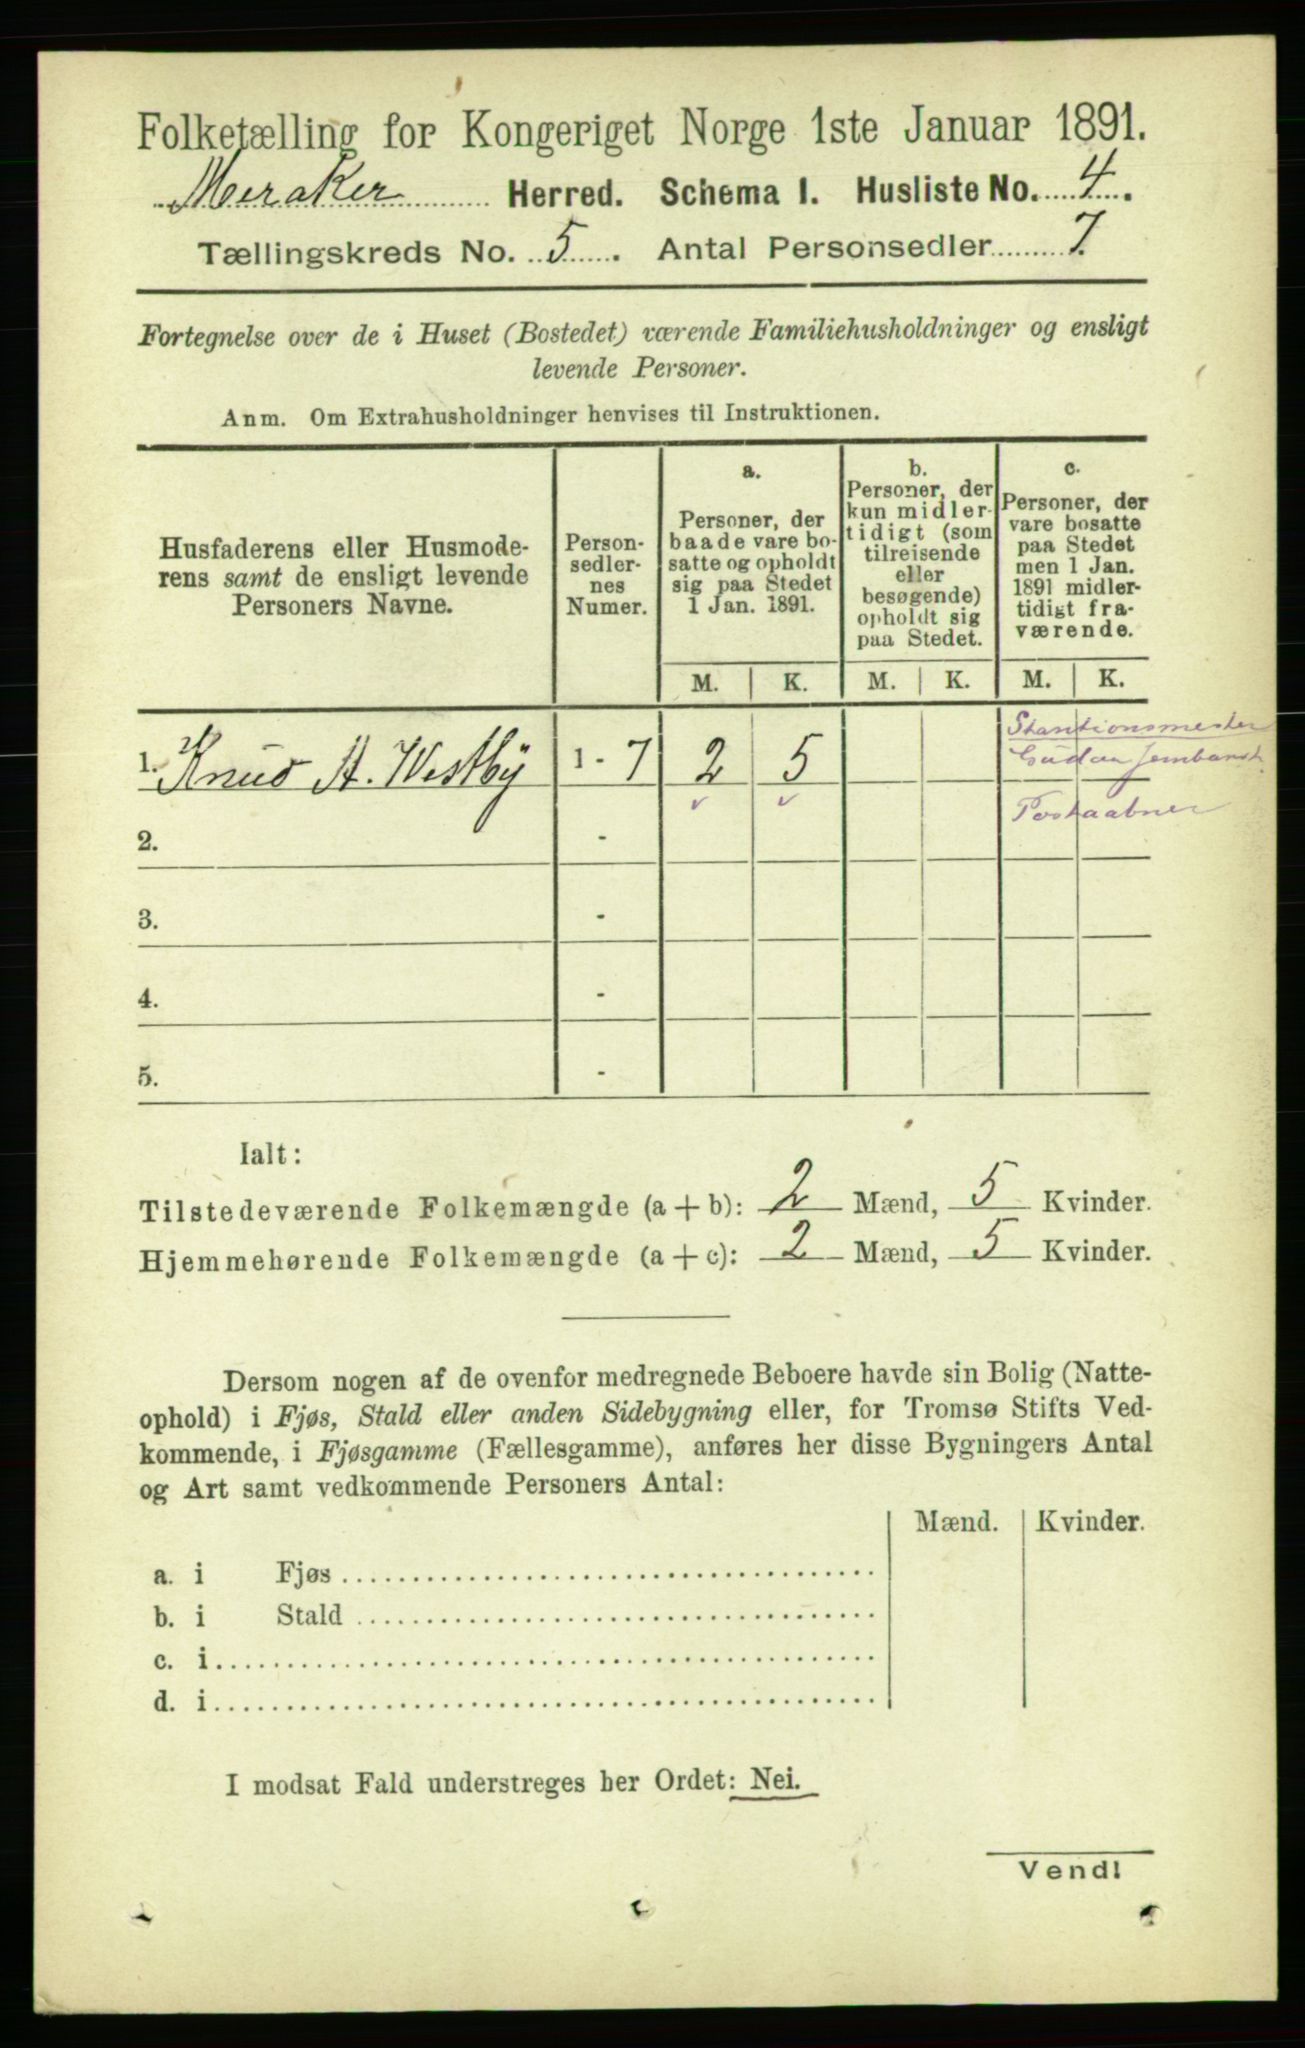 Folketælling for Kongeriget Norge 1ste Januar 1891.
Meraker Herred. Schema 1. Husliste No. 4.
Tællingskreds No. 5. Antal Personsedler 7
Fortegnelse over de i Huset (Bostedet) værende Familiehusholdninger og ensligt
levende Personer.
Anm. Om Extrahusholdninger henvises til Instruktionen.
Husfaderens eller Husmode-
rens samt de ensligt levende
Personers Navne.
Person-
sedler-
nes
Numer.
a.
Personer, der
baade vare bo-
satte og opholdt
sig paa Stedet
1 Jan. 1891.
b.
Personer, der
kun midler-
tidigt (som
tilreisende
eller
besøgende)
opholdt sig
paa Stedet.
c.
Personer, der
vare bosatte
paa Stedet
men 1 Jan.
1891 midler-
tidigt fra-
værende.
M. K. M. K. M. K.
1. Knud A. Westby 1 - 7 2 5
Stantionsmester
Gudaa Jernbanest.
Postaabner
2. -
3. -
4. -
5. -
Ialt:
Tilstedeværende Folkemængde (a + b): 2 Mænd, 5 Kvinder.
Hjemmehørende Folkemængde (a + c): 2 Mænd, 5 Kvinder.
Dersom nogen af de ovenfor medregnede Beboere havde sin Bolig (Natte-
ophold) i Fjøs, Stald eller anden Sidebygning eller, for Tromsø Stifts Ved-
kommende, i Fjøsgamme (Fællesgamme), anføres her disse Bygningers Antal
og Art samt vedkommende Personers Antal:
Mænd. Kvinder.
a. i Fjøs
b. i Stald
c. i
d. i
I modsat Fald understreges her Ordet: Nei.
Vend!